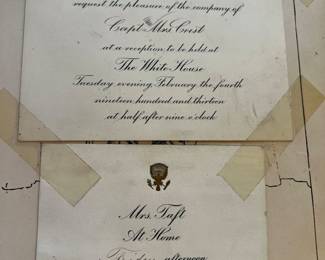 request the pleasure of the company of
Capt. Mrs. Crest
at a reception to be held at
The White House
Tuesday evening, February the fourth
nineteen hundred and thirteen
at half after nine o'clock
Mrs. Taft
At Home
afternoon